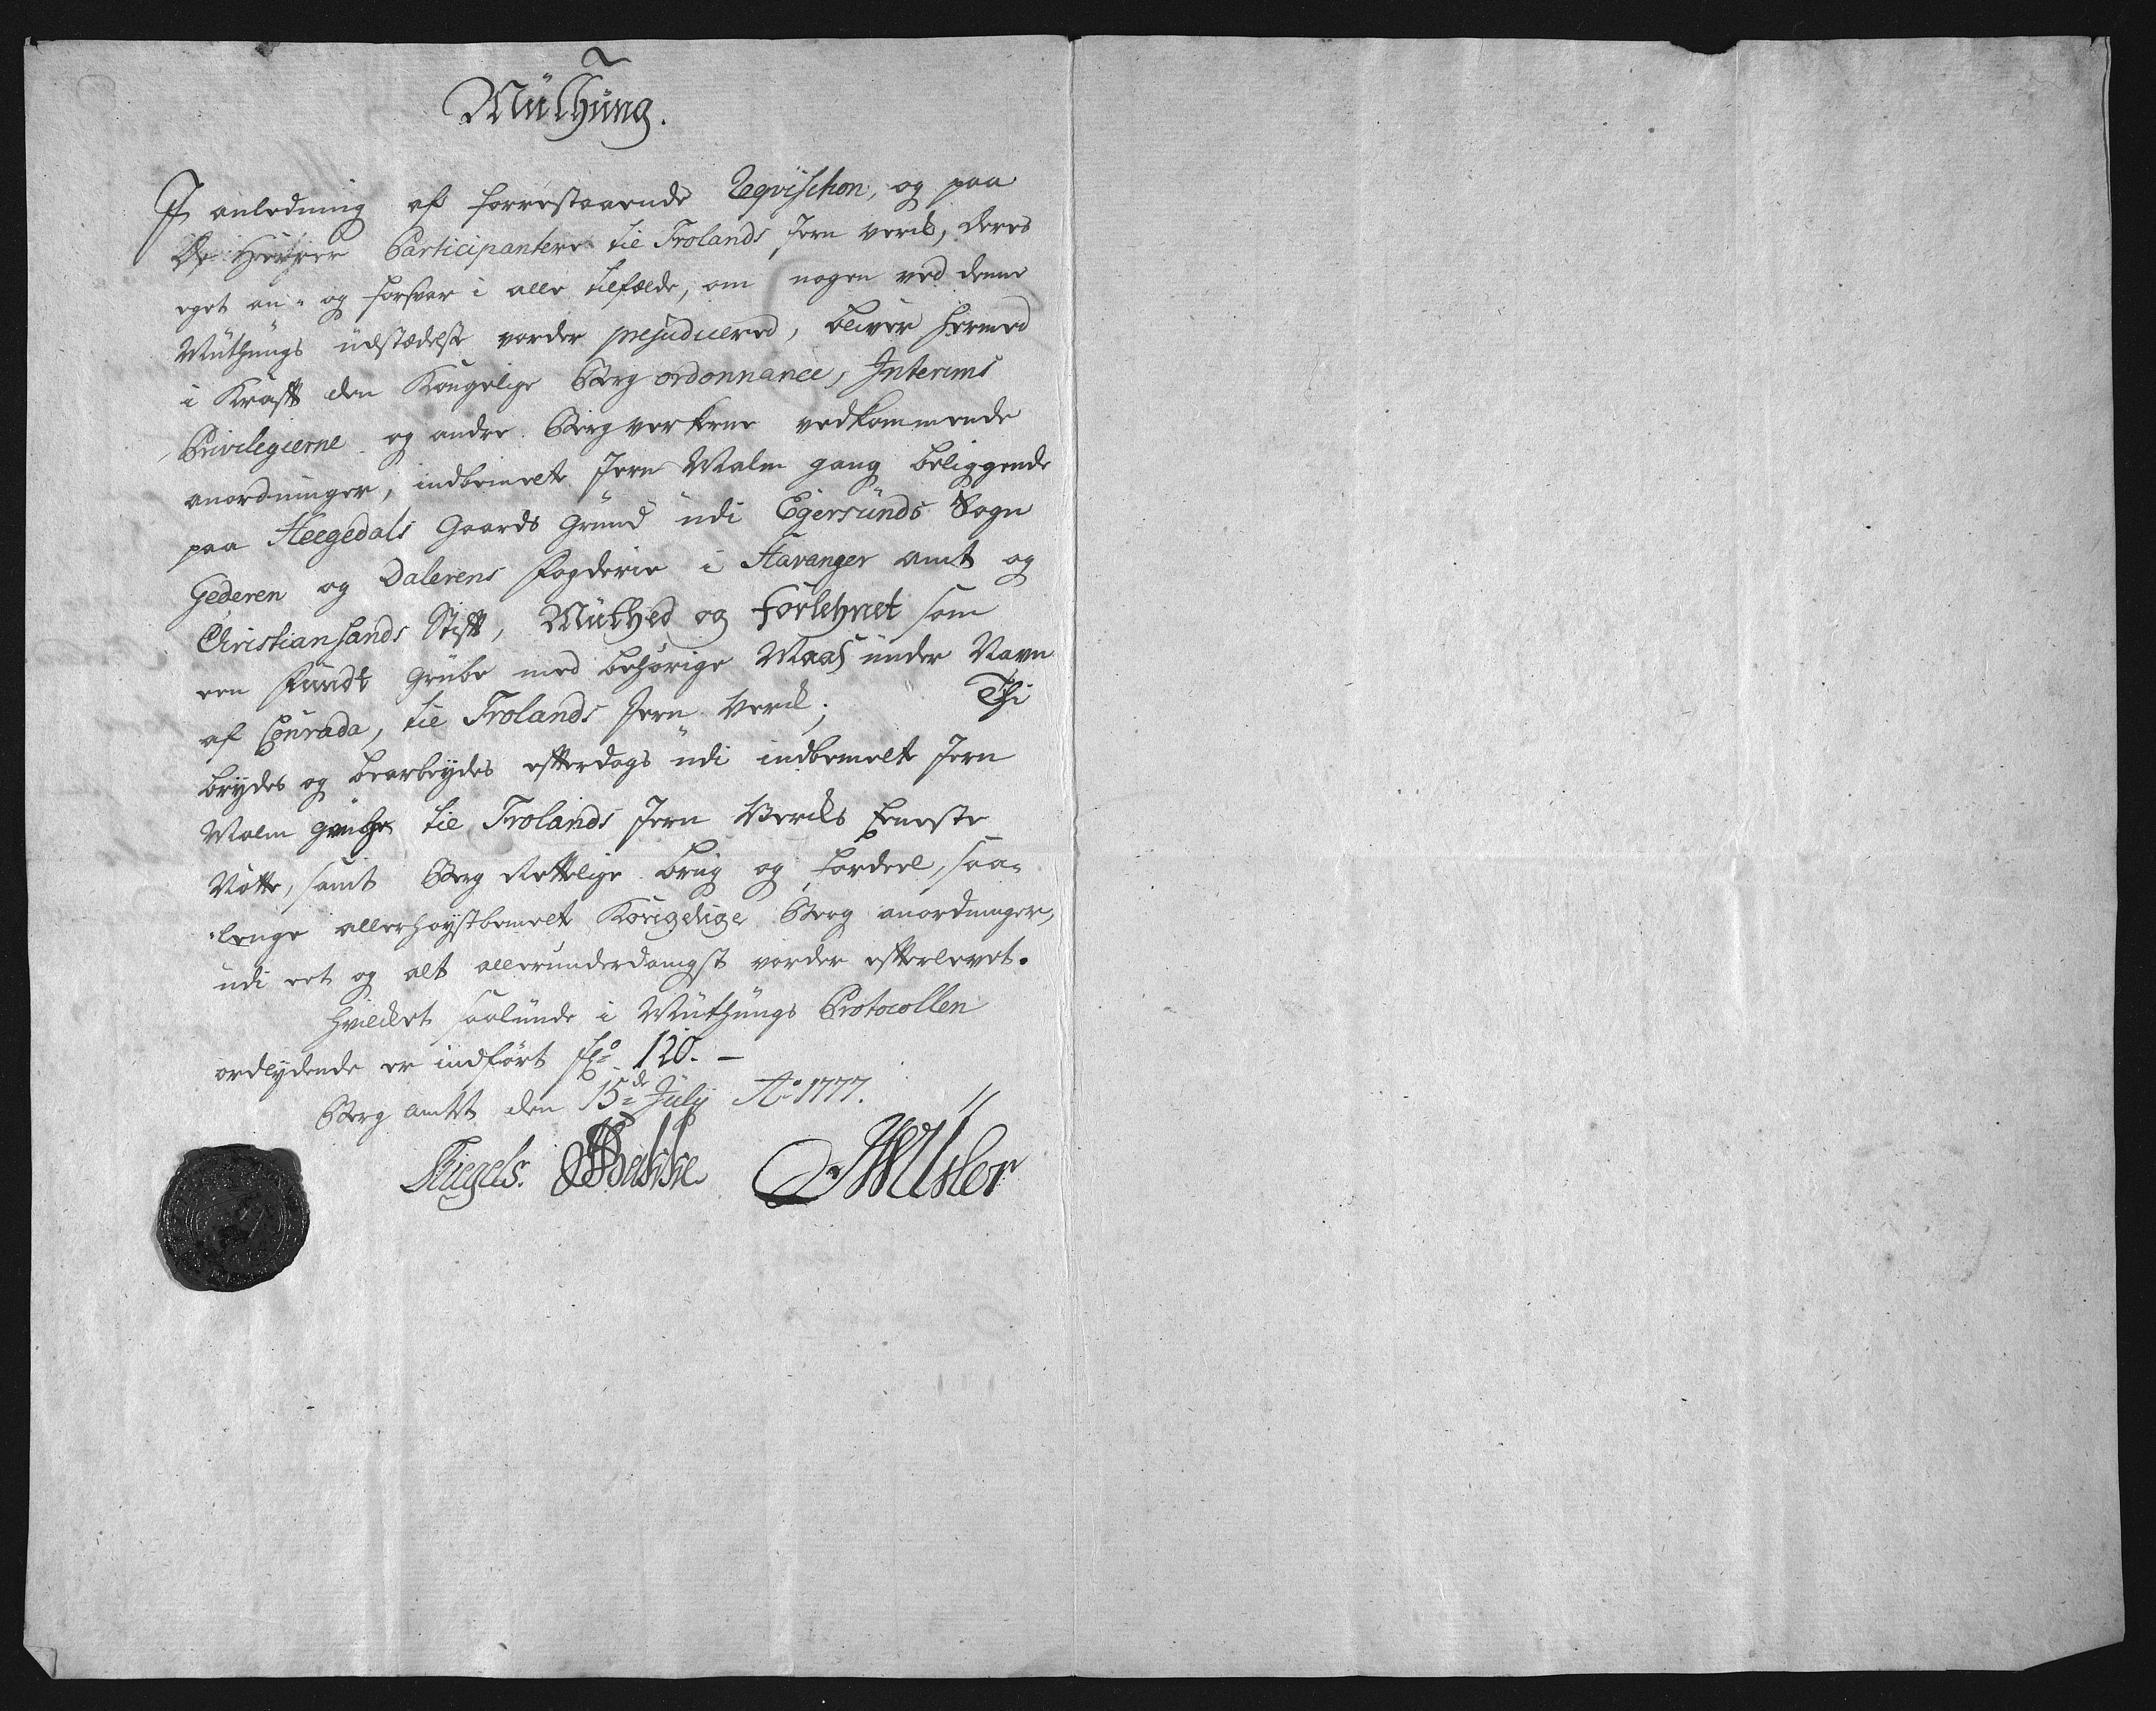 Müthüng.
I anledning af forrestaaende Reqvisition, og paa
De Herrer Participantere til Frolands Jern verck, deres
eget an- og forsvar i alle tilfælde, om nogen ved denne
Müthüngs üdstædelse vorder prejudicered, bliver hermed
i Krafft den Kongelige Berg ordonnance, Interims
Privilegierne og andre Bergverkene vedkommende
anordninger, indbemelte Jern Malm gang beliggende
paa Heegedals Gaards Grund üdi Egersünds Sogn
Gederen og Dalerens Fogderie i Stavanger amt og
Christiansands Stift, Müthed og Forlehnet som
een Fündt Grübe med behørige Maas ünder Navn
af Conrada, til Frolands Jern Verck; Thi
brydes og bearbeydes efterdags üdi indbemelte Jern
Malm grübe til Frolands Jern Vercks Eeneste
Nøtte, samt Berg Rettelige brüg og fordeel, saa-
-lenge allerhøystbemelt Kongelige Berg anordninger,
udi eet og alt allerunderdanigst vorder efterlevet.
Hvilcket saalünde i Müthüngs Protocollen
ordlydende er indført fol: 120. —
Berg amtet den 15de Jülij Ao 1777.
Stiegels. Bakke Usler